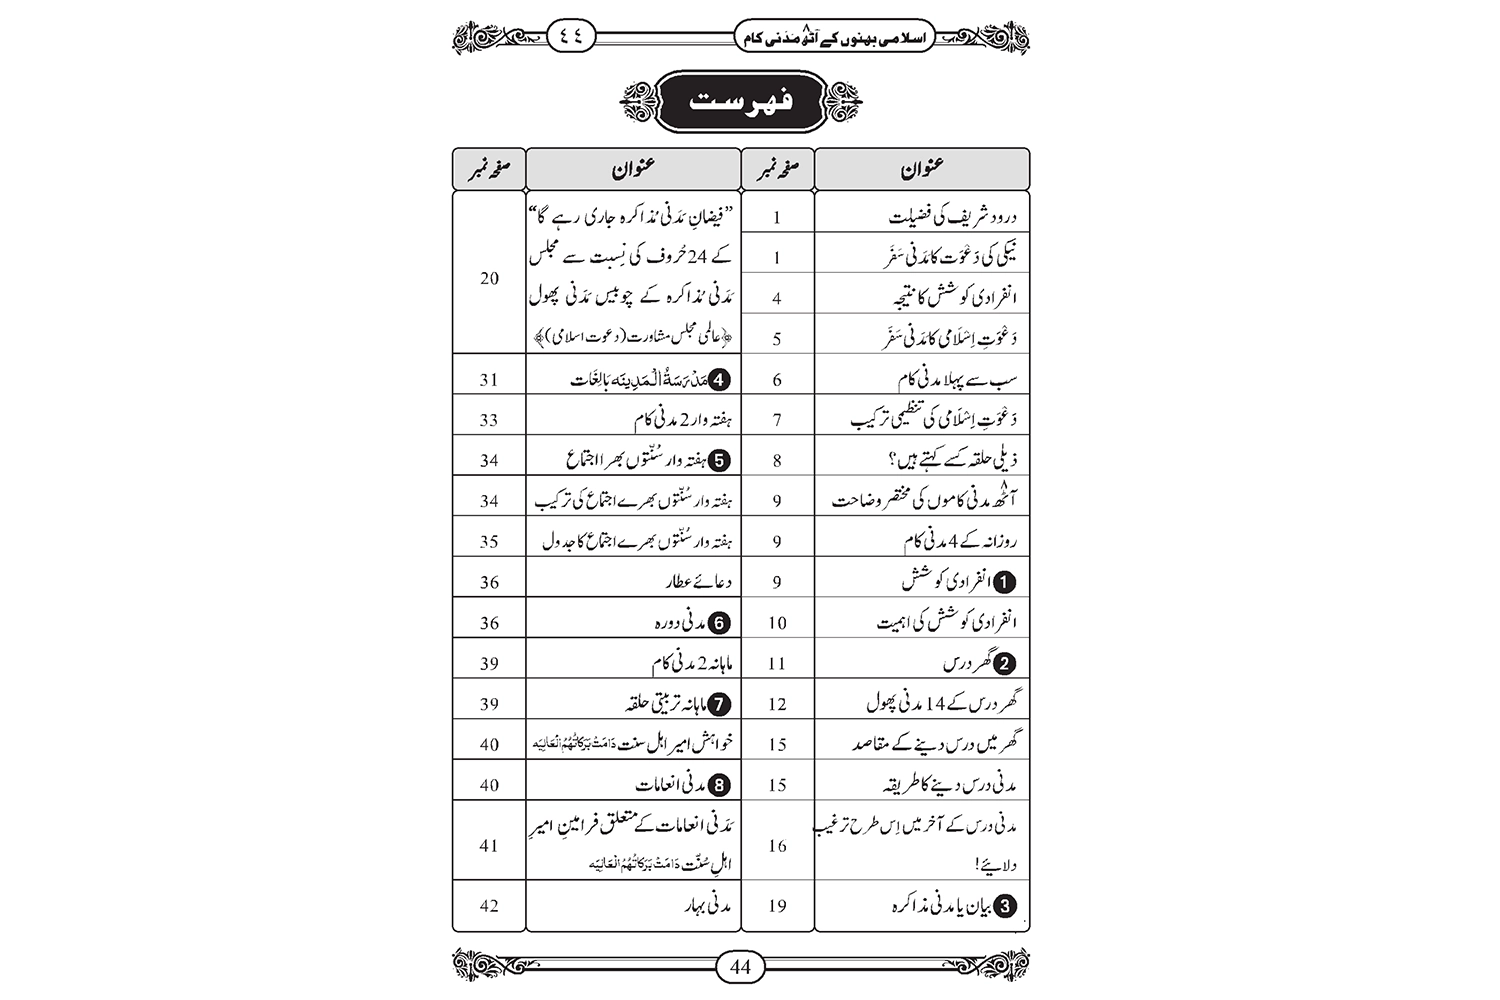 اسلامی بہنوں کے آٹھ مَدَنی کام
٤٤
فہرست
عنوان صفحہ نمبر
درود شریف کی فضیلت 1
نیکی کی دَعْوَت کا مَدَنی سَفَر 1
انفرادی کوشش کا نتیجہ 4
دَعْوَتِ اِسْلَامی کا مَدَنی سَفَر 5
سب سے پہلا مدنی کام 6
دَعْوَتِ اِسْلَامی کی تنظیمی ترکیب 7
ذیلی حلقہ کسے کہتے ہیں؟ 8
آٹھ مدنی کاموں کی مختصر وضاحت 9
روزانہ کے 4 مدنی کام 9
1 انفرادی کوشش 9
انفرادی کوشش کی اہمیت 10
2 گھر درس 11
گھر درس کے 14 مدنی پھول 12
گھر میں درس دینے کے مقاصد 15
مدنی درس دینے کا طریقہ 15
مدنی درس کے آخر میں اِس طرح ترغیب
دلائیے! 16
3 بیان یا مدنی مذاکرہ 19
عنوان صفحہ نمبر
”فیضانِ مَدَنی مُذاکرہ جاری رہے گا“
کے 24 حُروف کی نِسبت سے مجلس
مَدَنی مُذاکرہ کے چوبیس مَدَنی پھول 20
﴿عالمی مجلس مشاورت (دعوت اسلامی)﴾
4 مَدْرَسَۃُ الْمَدِینَہ بَالِغَات 31
ہفتہ وار 2 مدنی کام 33
5 ہفتہ وار سُنّتوں بھرا اجتماع 34
ہفتہ وار سُنّتوں بھرے اجتماع کی ترکیب 34
ہفتہ وار سُنّتوں بھرے اجتماع کا جدول 35
دعائے عطار 36
6 مدنی دورہ 36
ماہانہ 2 مدنی کام 39
7 ماہانہ تربیتی حلقہ 39
خواہش امیر اہل سنت دَامَتْ بَرَکَاتُہُمُ الْعَالِیَہ 40
8 مدنی انعامات 40
مَدَنی انعامات کے متعلق فرامینِ امیرِ
اہلِ سُنّت دَامَتْ بَرَکَاتُہُمُ الْعَالِیَہ 41
مدنی بہار 42
44